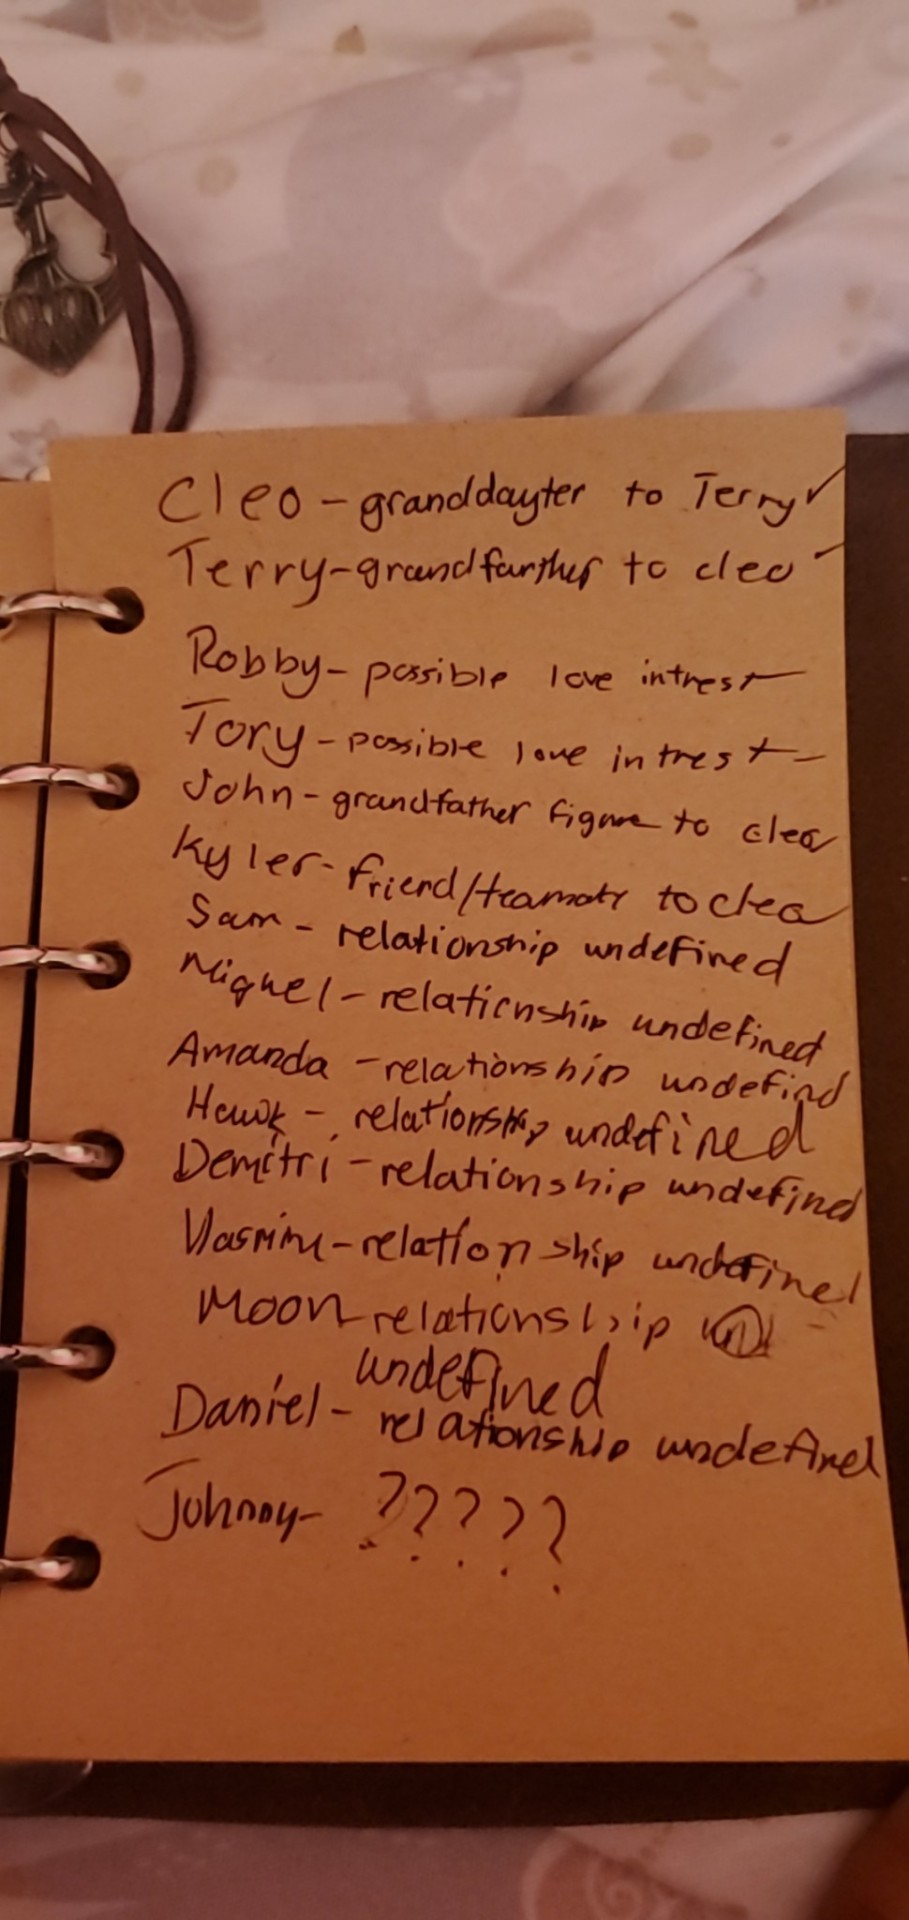 Cleo - granddayter to Terry ✓
Terry - grandfarther to cleo
Robby - possible love intrest
Tory - possible love intrest
John - grandfather figure to cleo
Kyler - friend/teamate to cleo
Sam - relationship undefined
Miguel - relationship undefined
Amanda - relationship undefind
Hawk - relationship undefined
Demitri - relationship undefined
relationship undefined
Moon - relationship
undefined
Daniel - relationship undefined
Johnny - ?????